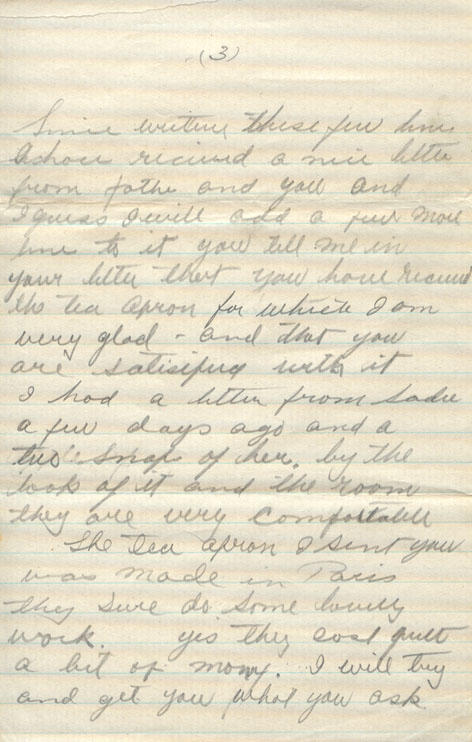 (3)
Since writing these few line
I have recieved a nice letter
from fathe and you and
I guess I will add a few more
line to it you tell me in
your letter that you have recieved
the tea apron for which I am
very glad - and that you
are satisifieg with it
I had a letter from Sadie
a few days ago and a
two snap of her. by the
look of it and the room
they are very comfortable
The tea apron I sent you
was made in Paris
they sure do some lovely
work. yis they cost quite
a bit of mony. I will try
and get you what you ask